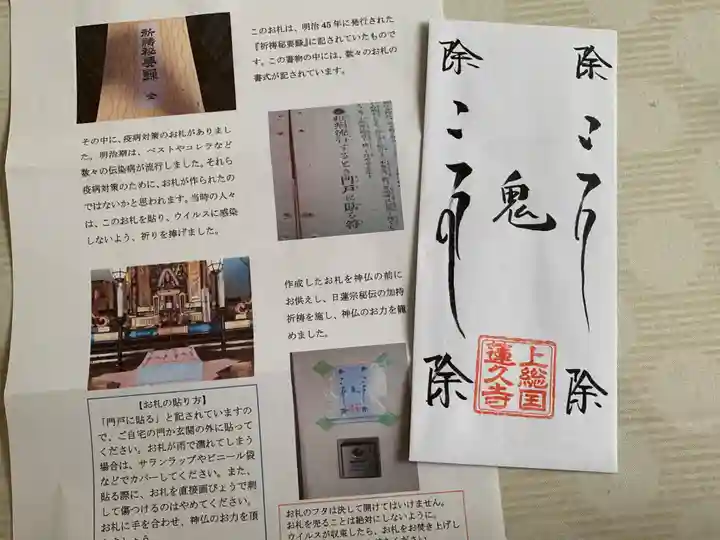 祈祷秘要録 全
このお札は、明治45年に発行された
『祈祷秘要録』に記されていたもので
す。この書物の中には、数々のお札の
書式が記されています。
その中に、疫病対策のお札がありまし
た。明治期は、ペストやコレラなど
数々の伝染病が流行しました。それら
疫病対策のために、お札が作られたの
ではないかと思われます。当時の人々
は、このお札を貼り、ウイルスに感染
しないよう、祈りを捧げました。
作成したお札を神仏の前に
お供えし、日蓮宗秘伝の加持
祈祷を施し、神仏のお力を籠
めました。
【お札の貼り方】
「門戸に貼る」と記されていますの
で、ご自宅の門か玄関の外に貼って
ください。お札が雨で濡れてしまう
場合は、サランラップやビニール袋
などでカバーしてください。また、
貼る際に、お札を直接画びょうで刺
して傷つけるのはやめてください。
お札に手を合わせ、神仏のお力を頂
きましょう。
お札のフタは決して開けてはいけません。
お札を売ることは絶対にしないように。
ウイルスが収束したら、お札をお焚き上げし
除
除
鬼
除
除
上総国
蓮久寺